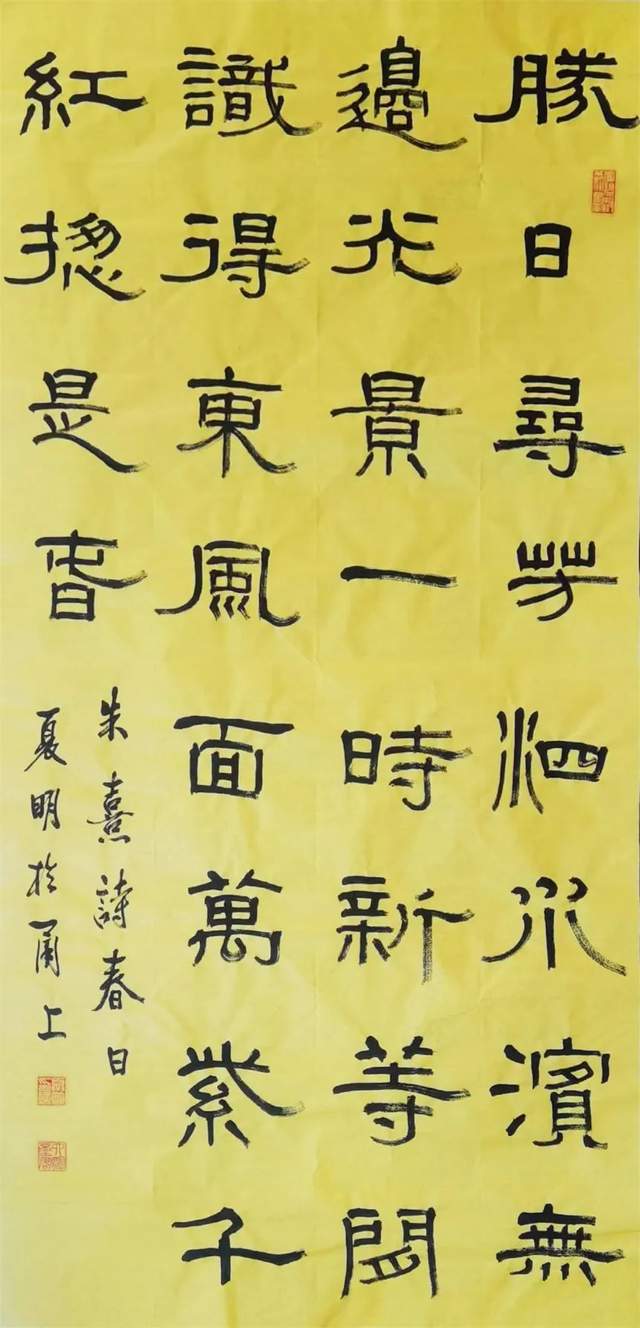 勝日尋芳泗水濱無
邊光景一時新等閒
識得東風面萬紫千
紅揔是旾
朱熹詩春日
夏明於甬上